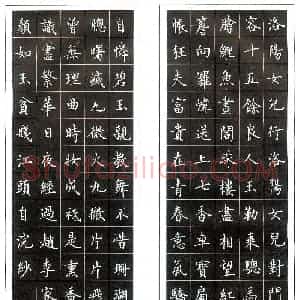 洛陽女兒行洛陽女兒對門
容顏十五餘良人玉勒乘驄
膾鯉魚畫閣朱樓盡相望
簷向羅帷送上七香車寶扇
帳狂夫富貴在青春意氣驕
自憐碧玉親教舞不惜珊瑚
窗曙滅九微火九微片片
曾無理曲時妝成祗是薰香
識盡繁華日夜經過趙李家
顏如玉貧賤江頭自浣紗